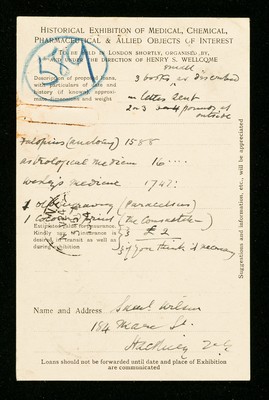 HISTORICAL EXHIBITION OF MEDICAL, CHEMICAL,
PHARMACEUTICAL & ALLIED OBJECTS OF INTEREST
TO BE HELD IN LONDON SHORTLY, ORGANISED BY,
AND UNDER THE DIRECTION OF HENRY S. WELLCOME
587
small
Description of proposed loans, 3 books as described
with particulars of size and in letter sent
history (if known), approximate dimensions and weight 2 or 3 pounds at
outside
Fallopius (anatomy) 1588
astrological medicine 16....
Wesley's medicine 1747
1 old engraving (Paracelsus)
1 coloured print (The Consultation)
Estimated value for insurance. £2
Kindly say if insurance is
desired in transit as well as
during exhibition if you think it necessary
Name and Address Saml. Wilson
184 Mare St.
Hackney N.E.
Loans should not be forwarded until date and place of Exhibition
are communicated
Suggestions and information, etc., will be appreciated